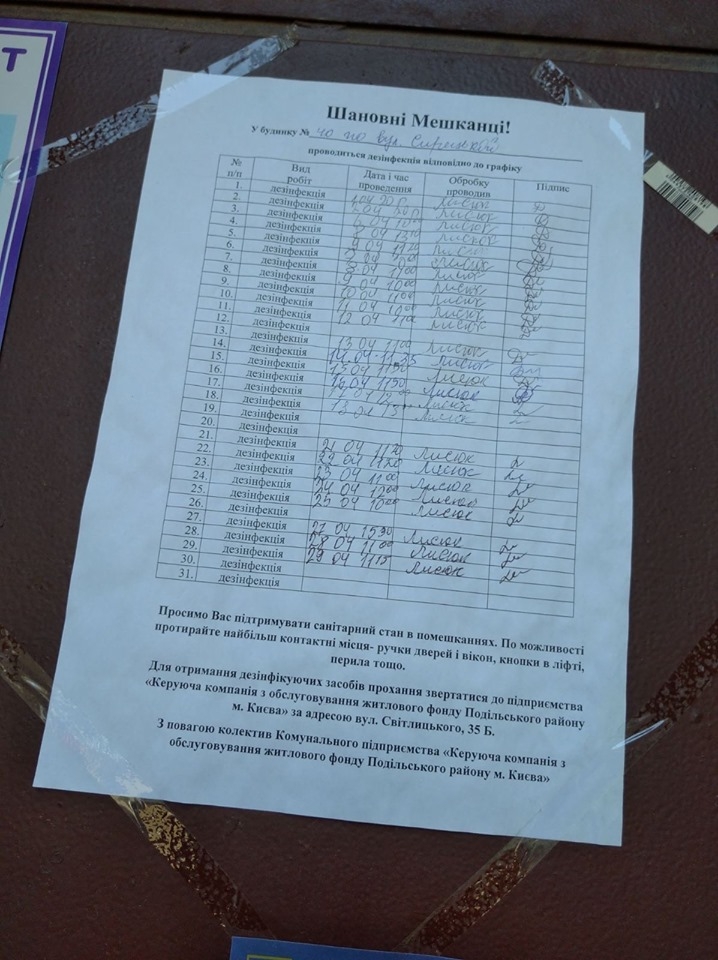 Т
Шановні Мешканці!
У будинку № 40 по вул. Сирецькій
проводиться дезінфекція відповідно до графіку
№ п/п Вид робіт Дата і час проведення Обробку проводив Підпис
1. дезінфекція Лисюк
2. дезінфекція Лисюк
3. дезінфекція Лисюк
4. дезінфекція Лисюк
5. дезінфекція Лисюк
6. дезінфекція Лисюк
7. дезінфекція Лисюк
8. дезінфекція Лисюк
9. дезінфекція Лисюк
10. дезінфекція Лисюк
11. дезінфекція Лисюк
12. дезінфекція 12 04 Лисюк
13. дезінфекція
14. дезінфекція 13 04 11 00 Лисюк
15. дезінфекція 14 04 11 25 Лисюк
16. дезінфекція 15 04 11 30 Лисюк
17. дезінфекція 16 04 11 30 Лисюк
18. дезінфекція Лисюк
19. дезінфекція 18 04 Лисюк
20. дезінфекція
21. дезінфекція
22. дезінфекція 21 04 11 20 Лисюк
23. дезінфекція 22 04 11 20 Лисюк
24. дезінфекція 23 04 11 00 Лисюк
25. дезінфекція 24 04 Лисюк
26. дезінфекція 25 04 10 00 Лисюк
27. дезінфекція
28. дезінфекція 27 04 15 30 Лисюк
29. дезінфекція 28 04 11 00 Лисюк
30. дезінфекція 29 04 11 15 Лисюк
31. дезінфекція
Просимо Вас підтримувати санітарний стан в помешканнях. По можливості
протирайте найбільш контактні місця- ручки дверей і вікон, кнопки в ліфті,
перила тощо.
Для отримання дезінфікуючих засобів прохання звертатися до підприємства
«Керуюча компанія з обслуговування житлового фонду Подільського району
м. Києва» за адресою вул. Світлицького, 35 Б.
З повагою колектив Комунального підприємства «Керуюча компанія з
обслуговування житлового фонду Подільського району м. Києва»